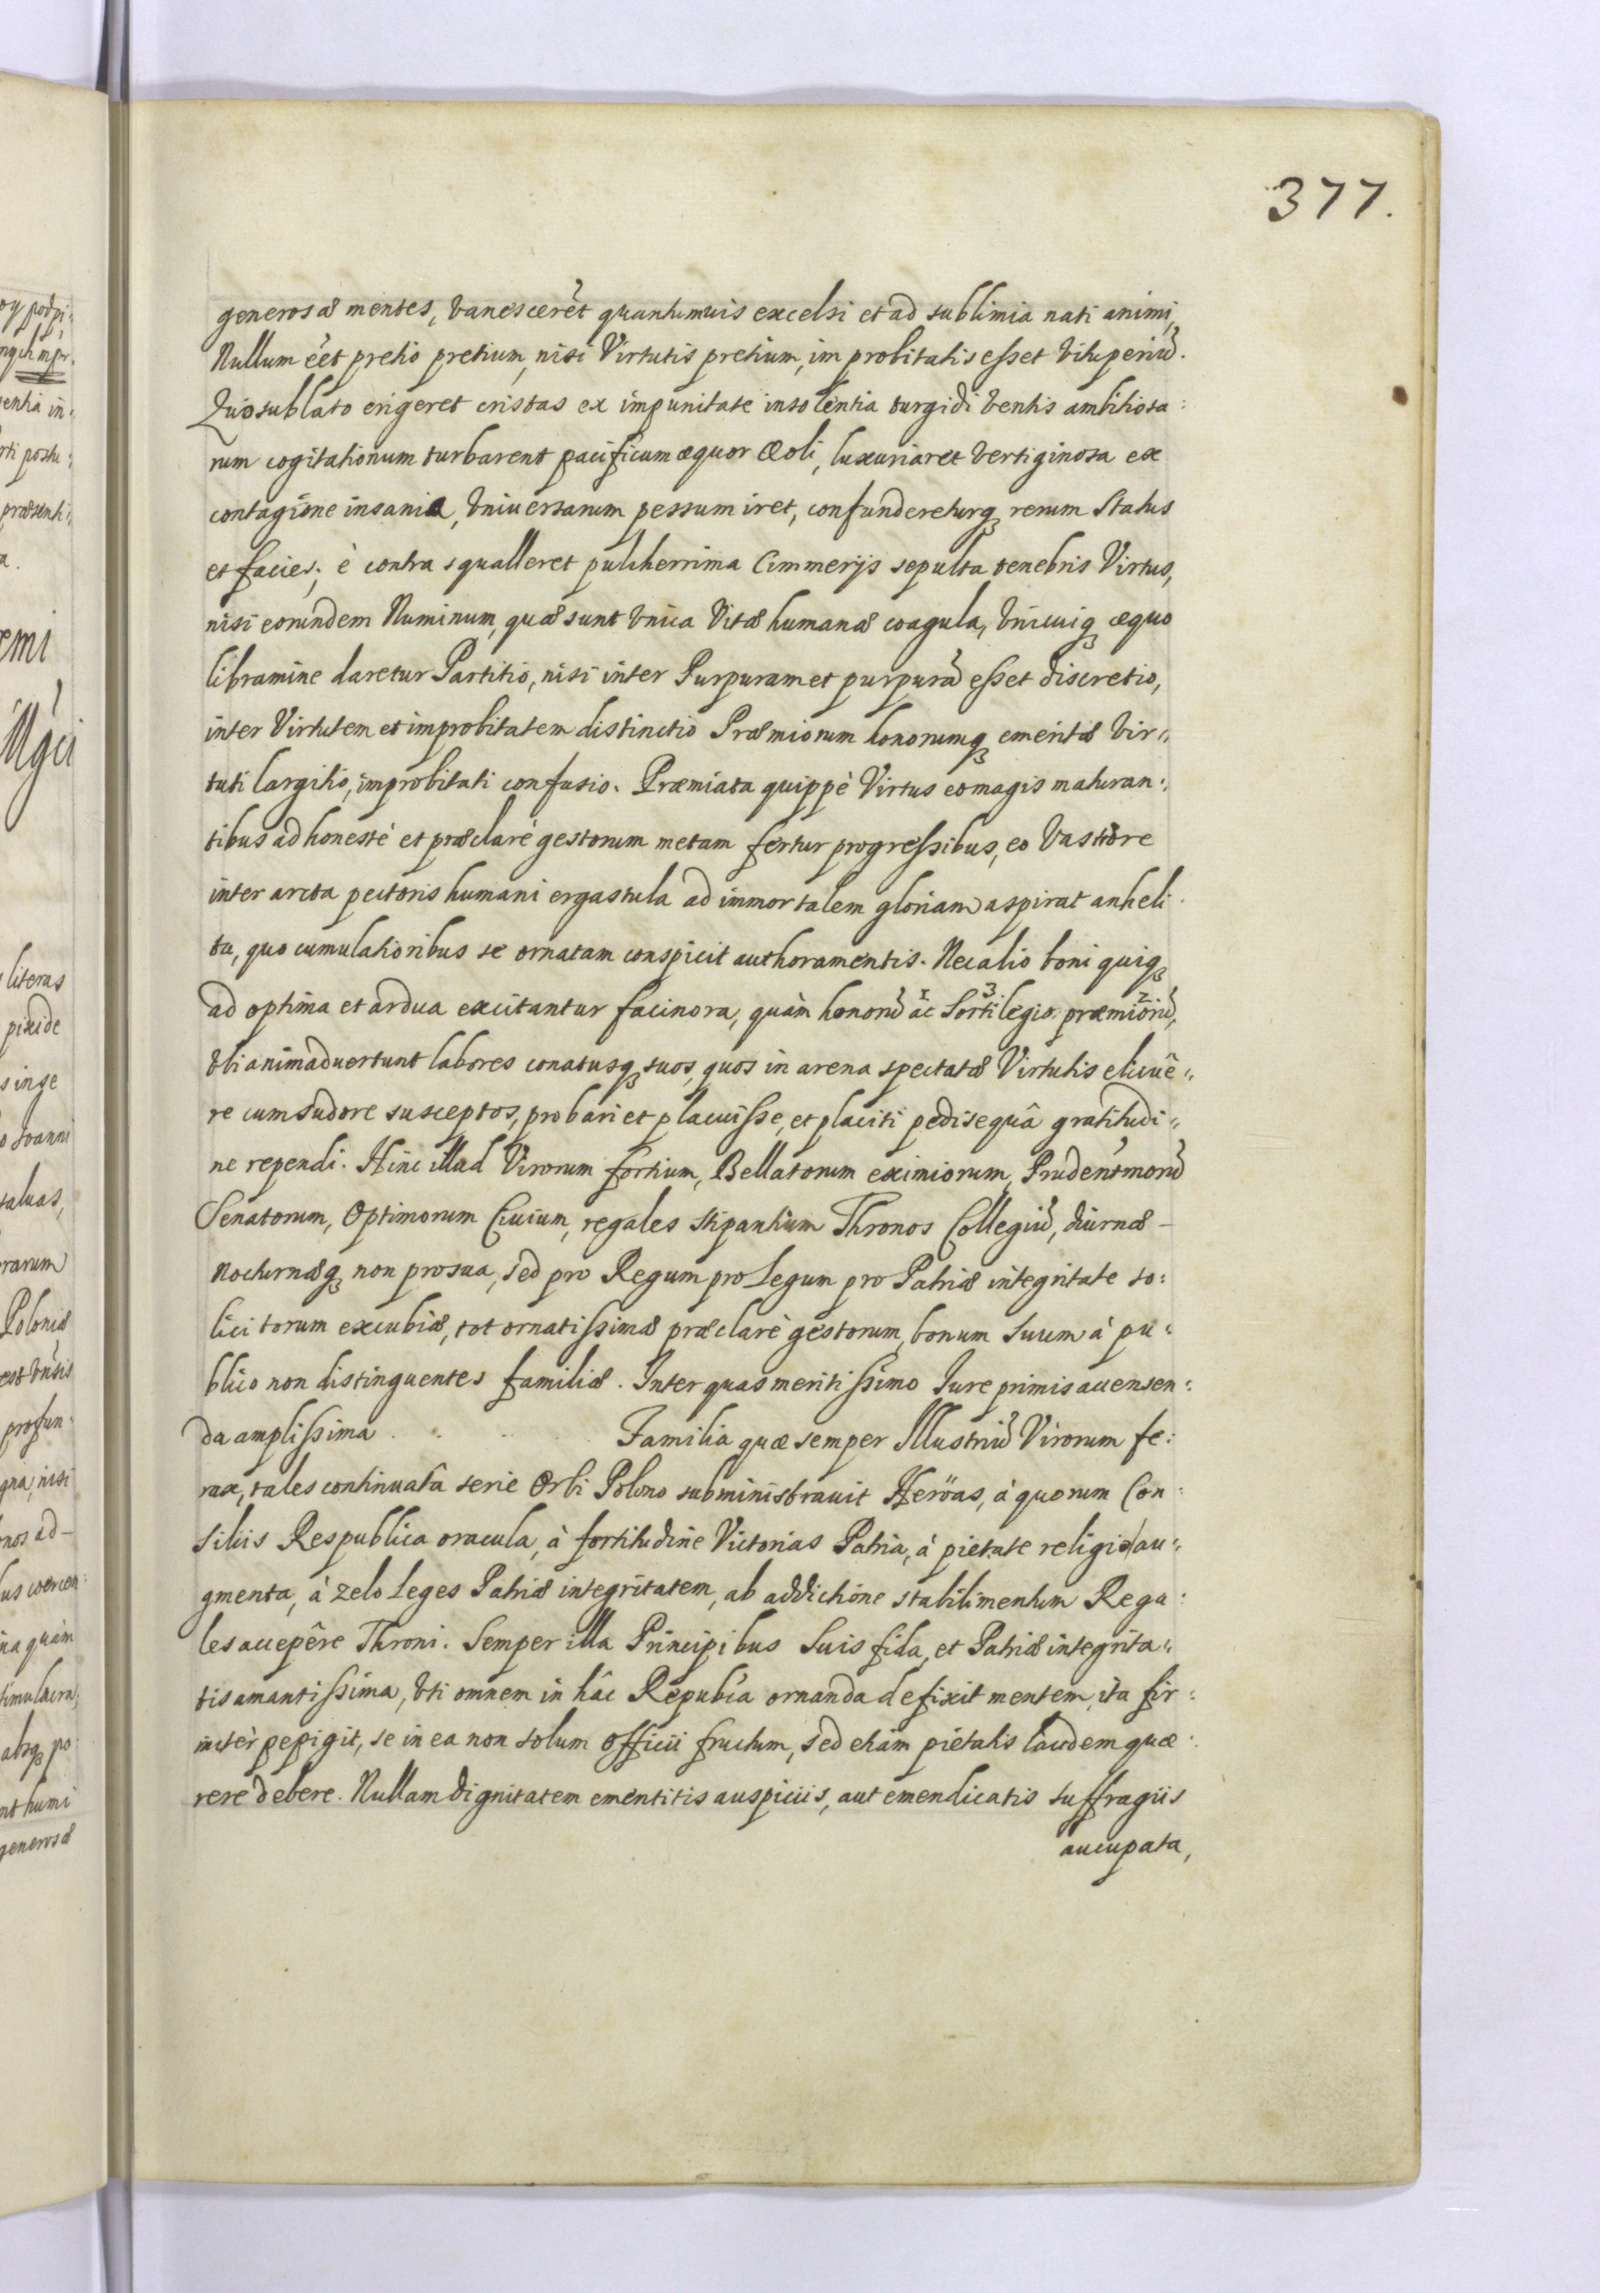 377.
generosæ mentes, vanesceret quantumvis excelsi et ad sublimia nati animi,
Nullum eet pretio pretium, nisi Virtutis pretium, improbitatis esset vituperiū.
Quo sublato erigeret cristas ex impunitate insolentia turgidi ventis ambitiosa:
rum cogitationum turbarent pacificum æquor Æoli, luxuriaret vertiginosa ex
contagione insania, vniversarum pessum iret, confundereturq rerum Status
et facies; è contra squalleret pulcherrima Cimmerijs sepulta tenebris Virtus,
nisi eorundem Numinum, quæ sunt vnica Vitæ humanæ coagula, vnicuiq æquo
libramine daretur Partitio, nisi inter Purpuram et purpurā esset discretio,
inter Virtutem et improbitatem distinctio Præmiorum honorumq emeritæ Vir:
tuti largitio, improbitati confusio. Præmiata quippè Virtus eo magis maturan:
tibus ad honestè et præclarè gestorum metam fertur progressibus, eo vastiore
inter arcta pectoris humani ergastula ad immortalem gloriam aspirat anheli:
tu, quo cumulatioribus se ornatam conspicit authoramentis. Nec alio boni quiq
ad optima et ardua excitantur facinora, quàm honorū 1 ac 3 Sortilegio præmiorū 2,
vbi animadvertunt labores conatusq suos, quos in arena spectatæ Virtutis elicuê:
re cum sudore susceptos, probari et placuisse, et placiti pedisequâ gratitudi:
ne rependi. Hinc illad Virorum fortium, Bellatorum eximiorum, Prudentmorū
Senatorum, Optimorum Civium, regales stipantium Thronos Collegiū, diurnæ-
Nocturnæq non pro sua, sed pro Regum pro Legum pro Patriæ integritate so:
licitorum excubiæ, tot ornatissimæ præclarè gestorum, bonum suum à pu:
blico non distinguentes familiæ. Inter quas meritissimo Jure primis accensen:
da amplissima . . . . Familia quæ semper Illustriū Virorum fe:
rax, tales continuatâ serie Orbi Polono subministravit Heröas, à quorum Con:
siliis Respublica oracula, à fortitudine Victorias Patria, à pietate religio au:
gmenta, à zelo Leges Patriæ integritatem, ab addictione stabilimentum Rega:
les accepêre Throni. Semper illa Principibus Suis fida, et Patriæ integrita:
tis amantissima, vti omnem in hâc Repubca ornanda defixit mentem, ita fir:
miter pepigit, se in ea non solum officii fructum, sed etiam pietatis laudem quæ:
rere debere. Nullam dignitatem ementitis auspiciis, aut emendicatis suffragiis
aucupata,